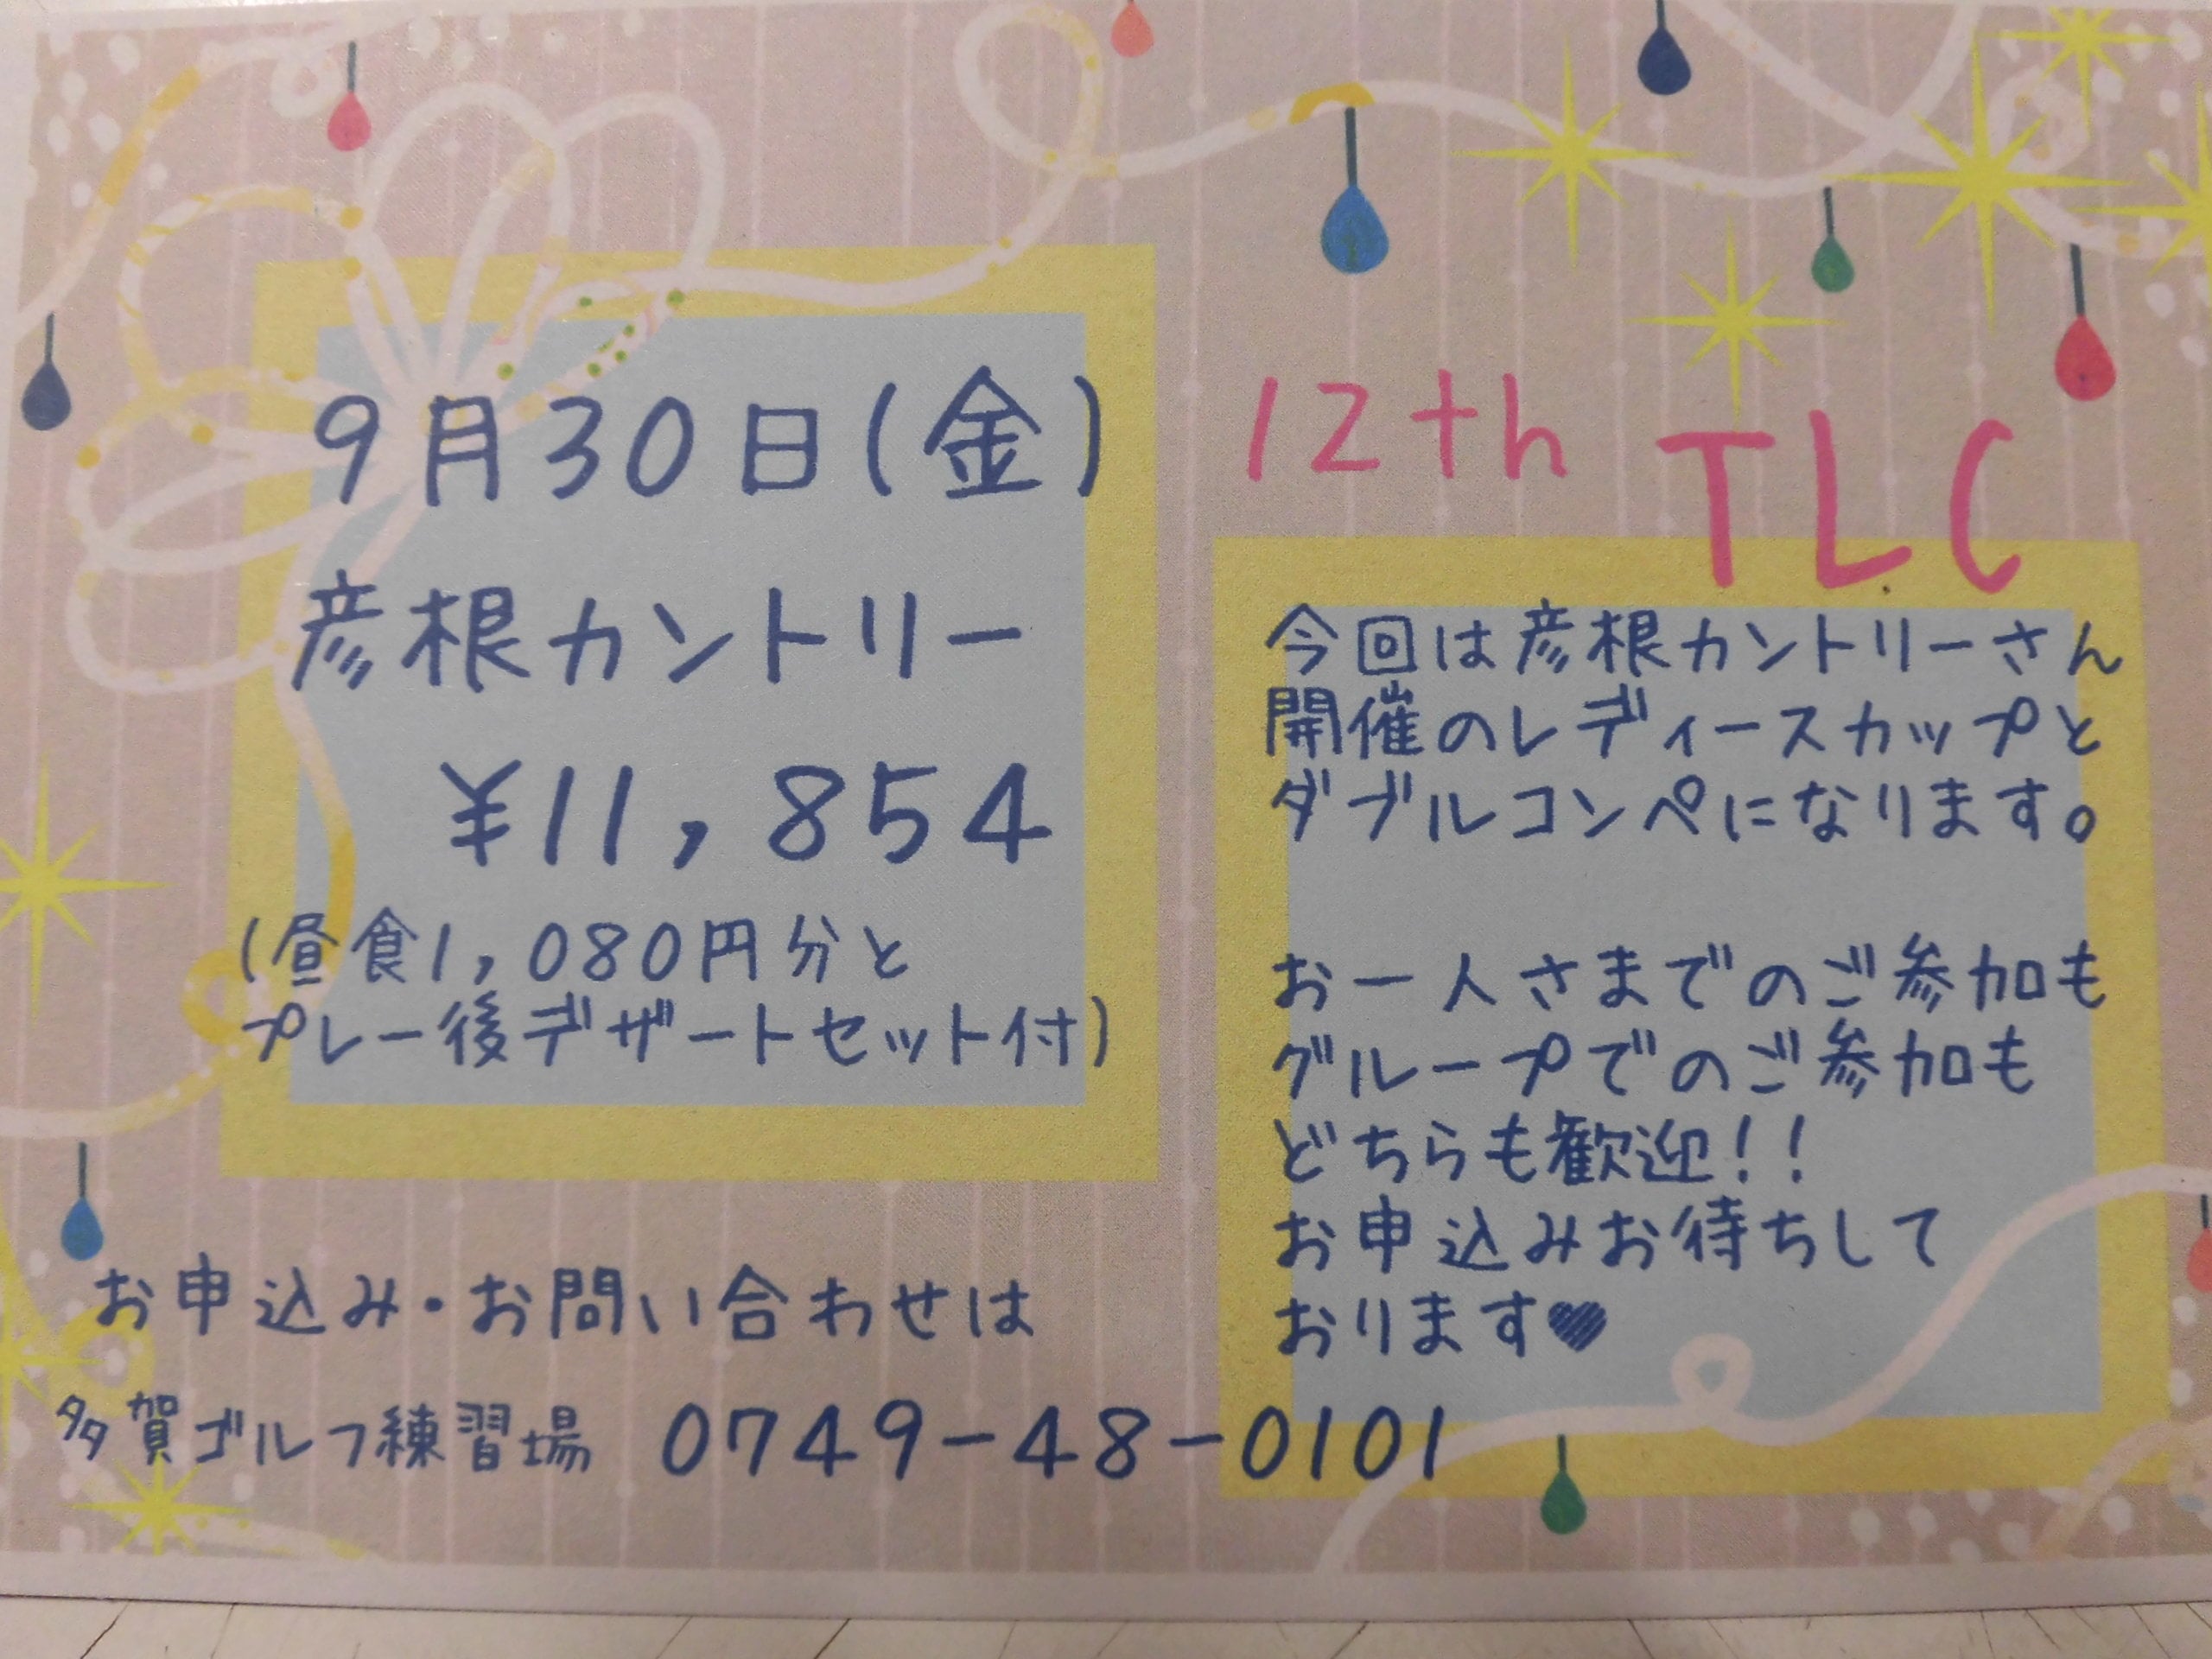 9月30日(金)
彦根カントリー
¥11,854
(昼食1,080円分と
プレー後デザートセット付)
12th TLC
今回は彦根カントリーさん
開催のレディースカップと
ダブルコンペになります。
お一人さまでのご参加も
グループでのご参加も
どちらも歓迎!!
お申込みお待ちして
おります♥
お申込み・お問い合わせは
多賀ゴルフ練習場 0749-48-0101